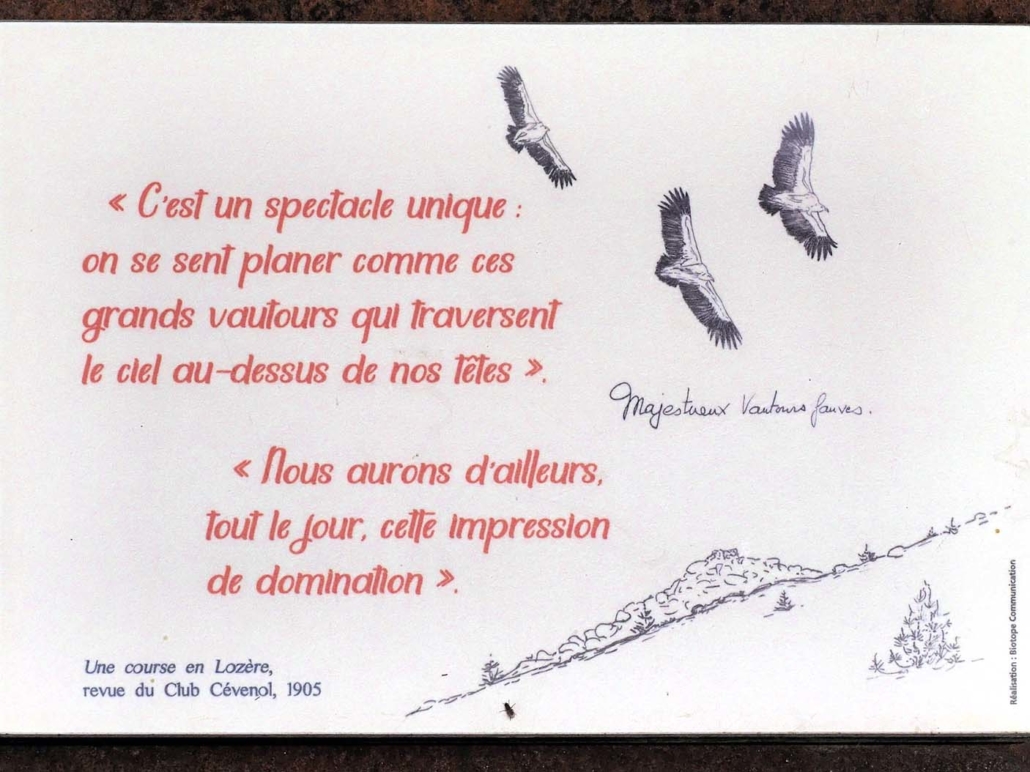 « C'est un spectacle unique :
on se sent planer comme ces
grands vautours qui traversent
le ciel au-dessus de nos têtes ».
Majestueux Vautours fauves.
« Nous aurons d'ailleurs,
tout le jour, cette impression
de domination ».
Une course en Lozère,
revue du Club Cévenol, 1905
Réalisation : Biotope Communication